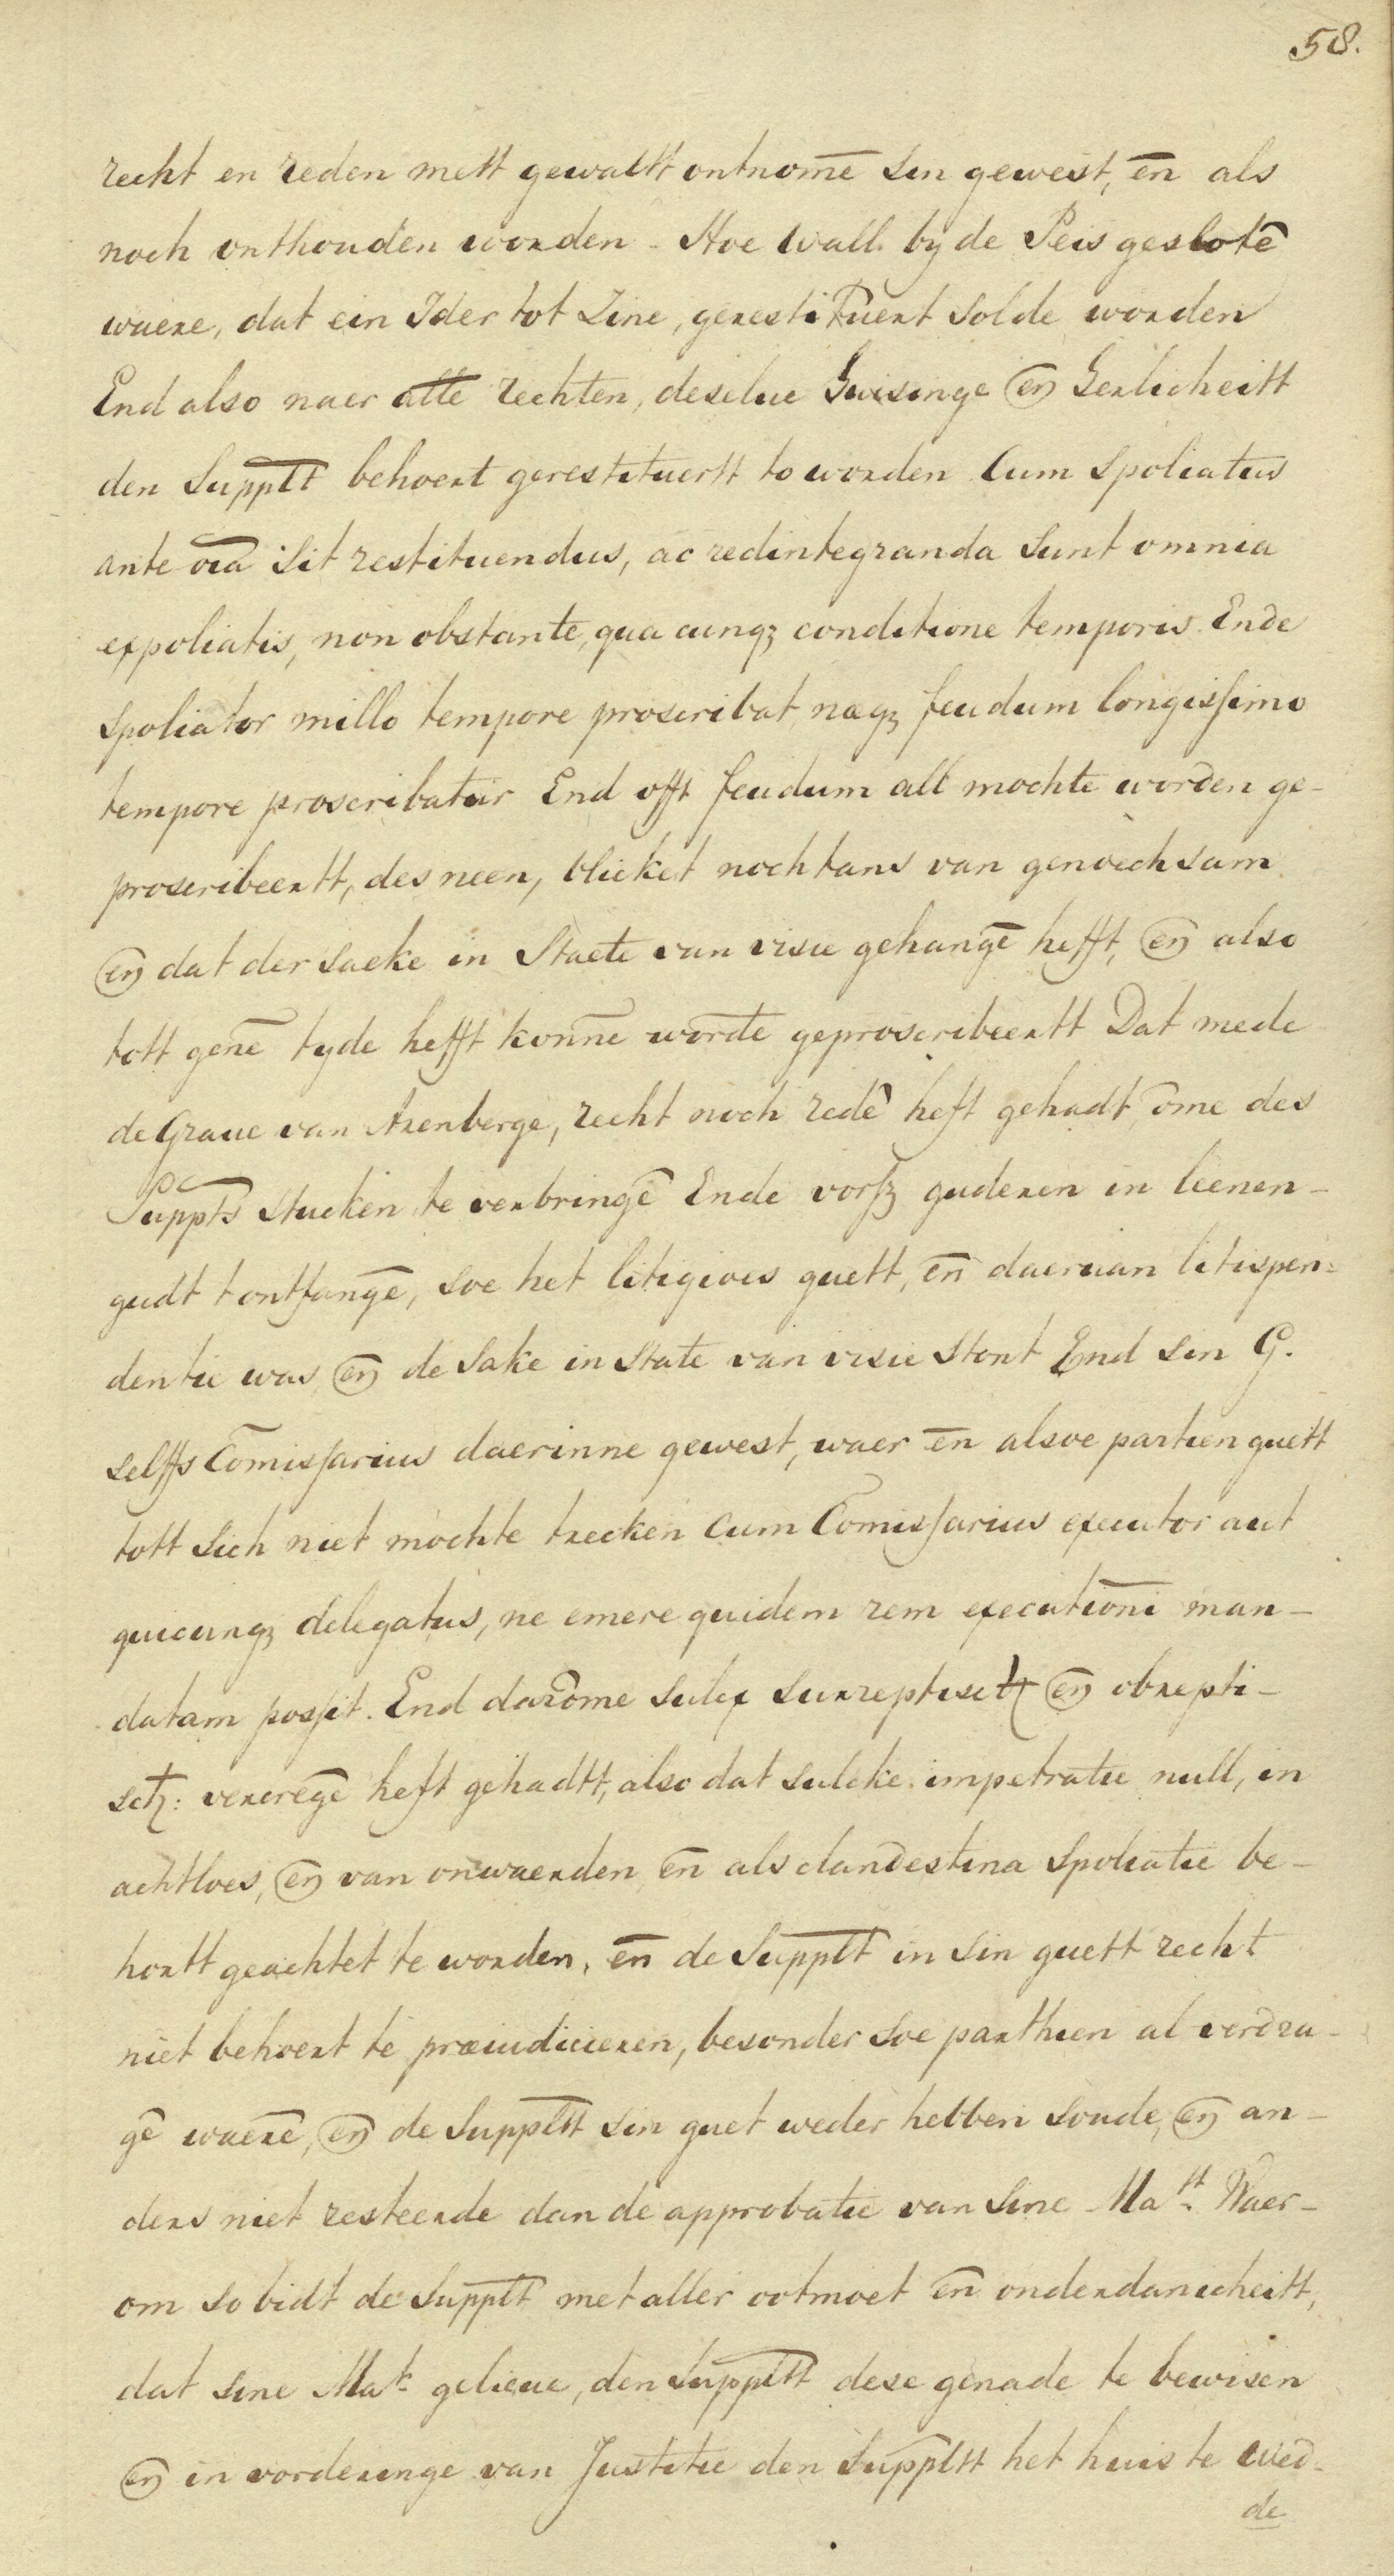 58.
recht en reden mett gewaltt ontnomē sin gewest, en̄ als
noch onthouden worden - Hoe wall by de Peis geslotē
waere, dat ein Ider tot Zine, gerestituert solde worden
End also naer alle rechten, deselue Huisinge en̄ Herlicheitt
den Supplt behoert gerestituertt to worden Cum Spoliatus
ante oīa sit restituendus, ac redintegranda sunt omnia
expoliatis, non obstante, qua cunqꝫ conditione temporis. Ende
spoliator millo tempore proscribat, næqꝫ feudum longissimo
tempore proscribatur End offt feudum all mochte worden ge-
proscribeertt, des neen, blicket nochtans van genoechsam
en̄ dat der saeke in Staete van visie gehangē hefft, en̄ also
tott genē tyde hefft konnē wordē geproscribeertt Dat mede
de Graue van Arenberge, recht noch redē heft gehadt, ōme des
Suppts stucken te verbringē Ende vorsꝫ guderen in leenen-
gudt t ontfangē, soe het litigioes guett, en̄ daeruan litispen-
dentie was en̄ de Sake in state van visie stont End sin G.
selffs Com̄issarius daerinne gewest, waer en̄ alsoe partien guett
tott sich niet mochte trecken Cum Com̄issarius executor aut
quicunqꝫ delegatus, ne emere quidem rem executioni man-
datam possit. End darōme sulex surreptisch en̄ obrepti-
sch: vercregē heft gehadtt, also dat sulcke impetratie null, in
achtloes, en̄ van onwaerden en̄ als clandestina Spoliatie be-
hortt geachtet te worden, en̄ de Supplt in sin guett recht
niet behoert te præiudicieren, besonder soe parthien al verdra-
gē waerē, en̄ de Suppltt sin guet weder hebben soude, en̄ an-
ders niet resteerde dan de approbatie van Sine Matt. Waer-
om so bidt de Supplt met aller ootmoet en̄ onderdanicheitt,
dat sine Mat. gelieue, den Suppltt dese genade te bewisen
en̄ in vorderinge van Justitie den Suppltt het huis te Wed-
de